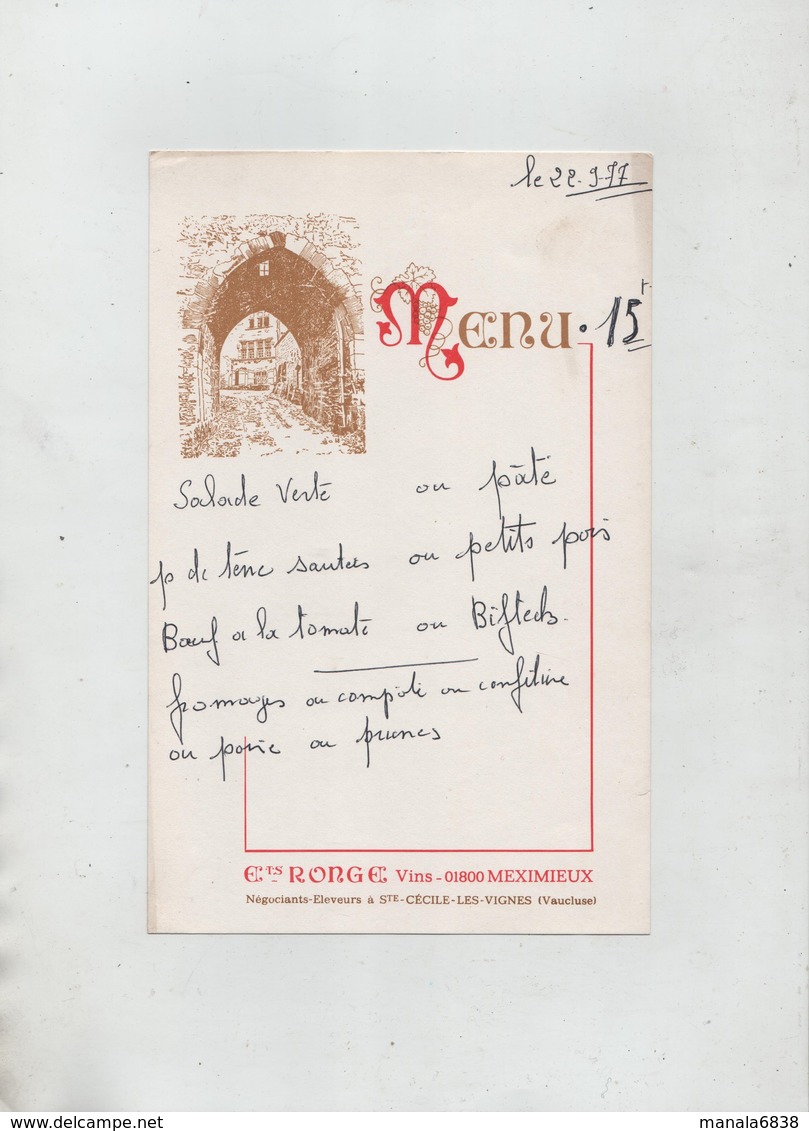 le 22-9-77
Menu . 15
Salade Verte ou pâté
p de terre sautees ou petits pois
Bœuf a la tomate ou Biftecks.
fromages ou compote ou confiture
ou poire ou prunes
ETS RONGE Vins - 01800 MEXIMIEUX
Négociants-Eleveurs à STE-CÉCILE-LES-VIGNES (Vaucluse)
www.delcampe.net
manala6838